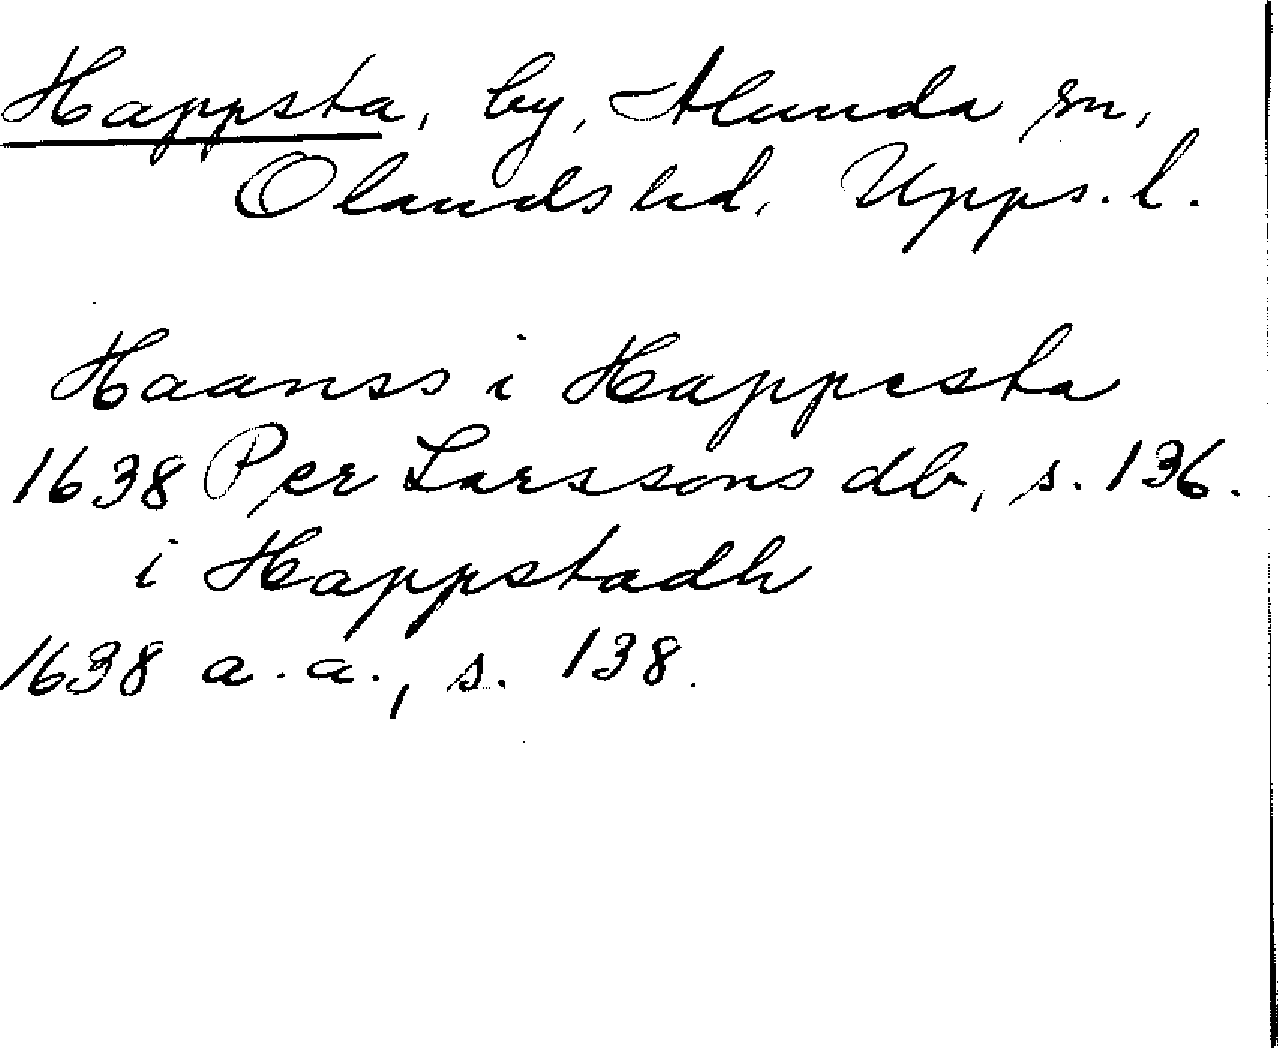 Happsta, by, Alunda sn,
Olands hd. Upps. l.
Haanss i Happesta
1638 Per Larssons db, s. 136.
i Happstadh
1638 a. a., s. 138.